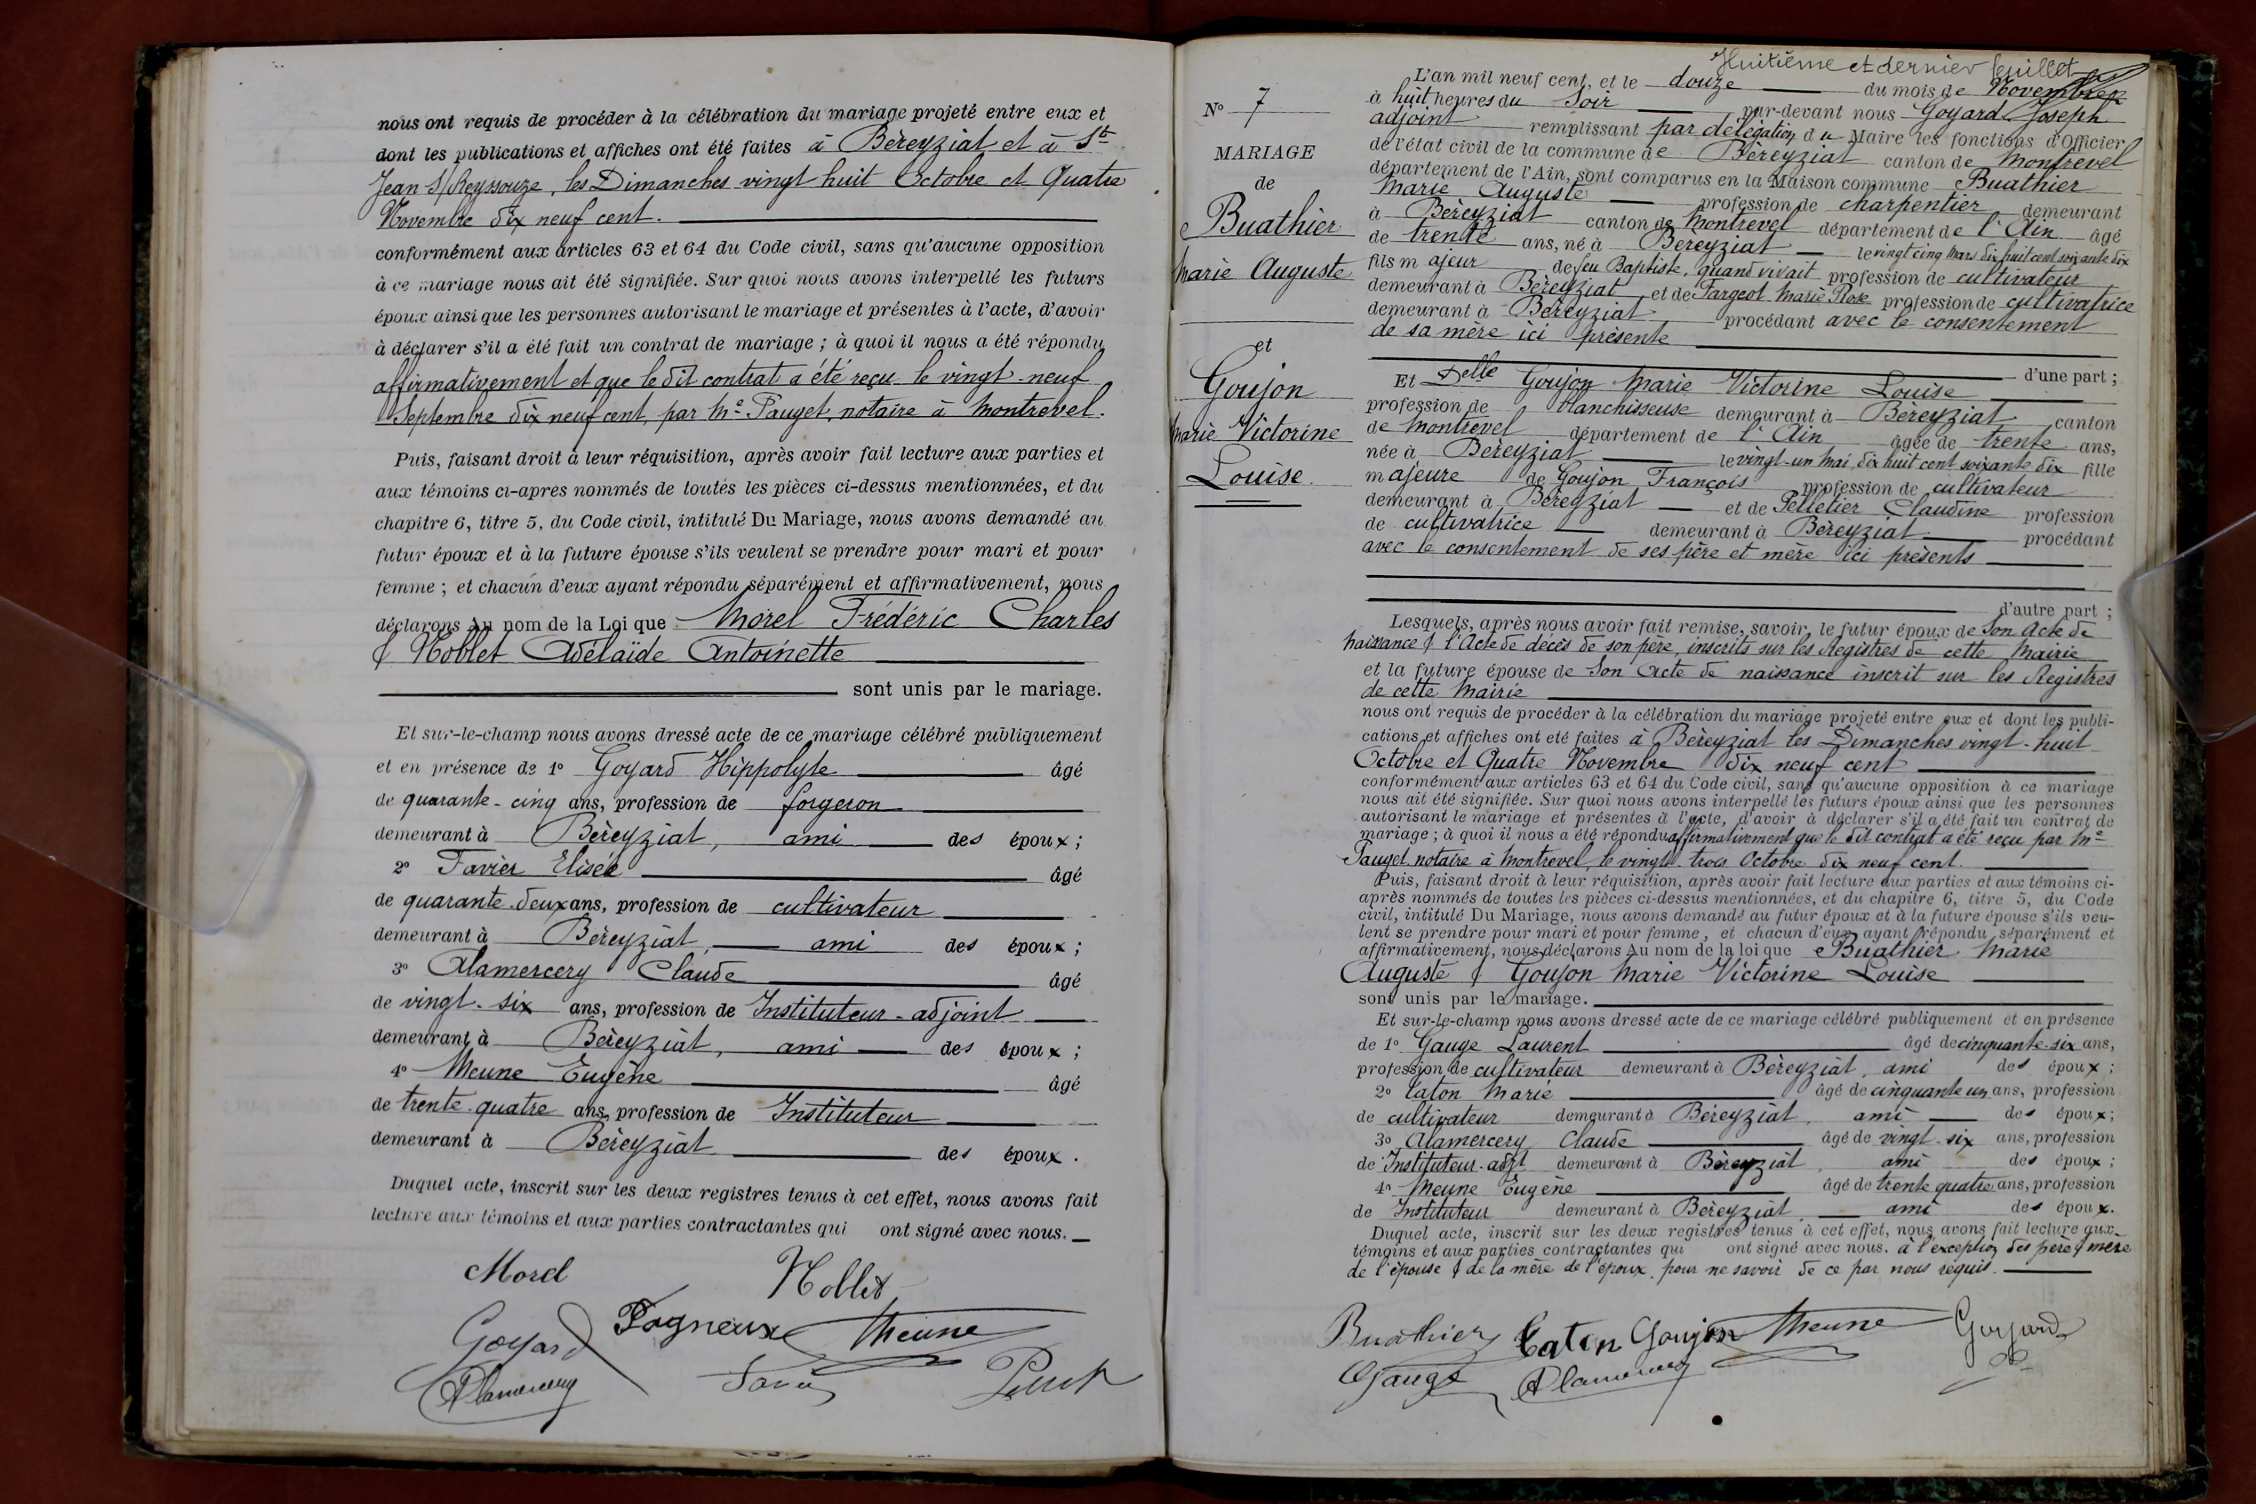 nous ont requis de procéder à la célébration du mariage projeté entre eux et
dont les publications et affiches ont été faites à Béreyziat et à St
Jean s/ Reyssouze, les Dimanches vingt huit Octobre et Quatre
Novembre dix neuf cent.
conformément aux articles 63 et 64 du Code civil, sans qu'aucune opposition
à ce mariage nous ait été signifiée. Sur quoi nous avons interpellé les futurs
époux ainsi que les personnes autorisant le mariage et présentes à l'acte, d'avoir
à déclarer s'il a été fait un contrat de mariage ; à quoi il nous a été répondu
affirmativement et que le dit contrat a été reçu le vingt-neuf
Septembre dix neuf cent, par Me Pauget, notaire à Montrevel.
Puis, faisant droit à leur réquisition, après avoir fait lecture aux parties et
aux témoins ci-après nommés de toutes les pièces ci-dessus mentionnées, et du
chapitre 6, titre 5, du Code civil, intitulé Du Mariage, nous avons demandé au
futur époux et à la future épouse s'ils veulent se prendre pour mari et pour
femme ; et chacun d'eux ayant répondu séparément et affirmativement, nous
déclarons Au nom de la Loi que Morel Frédéric Charles
& Noblet Adélaïde Antoinette
sont unis par le mariage.
Et sur-le-champ nous avons dressé acte de ce mariage célébré publiquement
et en présence de 1° Goyard Hippolyte âgé
de quarante-cinq ans, profession de forgeron
demeurant à Béreyziat, ami des époux ;
2° Favier Elisée âgé
de quarante-deux ans, profession de cultivateur
demeurant à Béreyziat, ami des époux ;
3° Alamercery Claude âgé
de vingt-six ans, profession de Instituteur-adjoint
demeurant à Béreyziat, ami des époux ;
4° Meune Eugène âgé
de trente-quatre ans, profession de Instituteur
demeurant à Béreyziat des époux.
Duquel acte, inscrit sur les deux registres tenus à cet effet, nous avons fait
lecture aux témoins et aux parties contractantes qui ont signé avec nous.
Morel Noblet
Goyard Pagneux Meune
Alamercery Favier
Huitième et dernier feuillet
N° 7
MARIAGE
de
Buathier
Marie Auguste
et
Goujon
Marie Victorine
Louise.
L'an mil neuf cent, et le douze du mois de Novembre
à huit heures du Soir par-devant nous Goyard Joseph
adjoint remplissant par délégation du Maire les fonctions d'Officier
de l'état civil de la commune de Béreyziat canton de Montrevel
département de l'Ain, sont comparus en la Maison commune Buathier
Marie Auguste profession de charpentier demeurant
à Béreyziat canton de Montrevel département de l'Ain âgé
de trente ans, né à Béreyziat le vingt cinq Mars dix huit cent soixante dix
fils majeur de feu Baptiste, quand vivait profession de cultivateur
demeurant à Béreyziat et de Fargeot Marie Rose profession de cultivatrice
demeurant à Béreyziat procédant avec le consentement
de sa mère ici présente
d'une part ;
Et Delle Goujon Marie Victorine Louise
profession de blanchisseuse demeurant à Béreyziat canton
de Montrevel département de l'Ain âgée de trente ans,
née à Béreyziat le vingt-un Mai, dix huit cent soixante dix fille
majeure de Goujon François profession de cultivateur
demeurant à Béreyziat et de Pelletier Claudine profession
de cultivatrice demeurant à Béreyziat procédant
avec le consentement de ses père et mère ici présents
d'autre part ;
Lesquels, après nous avoir fait remise, savoir, le futur époux de Son Acte de
naissance & l'Acte de décès de son père, inscrits sur les Registres de cette Mairie
et la future épouse de Son Acte de naissance inscrit sur les Registres
de cette Mairie
nous ont requis de procéder à la célébration du mariage projeté entre eux et dont les publi-
cations et affiches ont été faites à Béreyziat les Dimanches vingt-huit
Octobre et Quatre Novembre dix neuf cent
conformément aux articles 63 et 64 du Code civil, sans qu'aucune opposition à ce mariage
nous ait été signifiée. Sur quoi nous avons interpellé les futurs époux ainsi que les personnes
autorisant le mariage et présentes à l'acte, d'avoir à déclarer s'il a été fait un contrat de
mariage ; à quoi il nous a été répondu affirmativement que le dit contrat a été reçu par Me
Pauget notaire à Montrevel, le vingt trois Octobre dix neuf cent.
Puis, faisant droit à leur réquisition, après avoir fait lecture aux parties et aux témoins ci-
après nommés de toutes les pièces ci-dessus mentionnées, et du chapitre 6, titre 5, du Code
civil, intitulé Du Mariage, nous avons demandé au futur époux et à la future épouse s'ils veu-
lent se prendre pour mari et pour femme, et chacun d'eux ayant répondu séparément et
affirmativement, nous déclarons Au nom de la loi que Buathier Marie
Auguste & Goujon Marie Victorine Louise
sont unis par le mariage.
Et sur-le-champ nous avons dressé acte de ce mariage célébré publiquement et en présence
de 1° Gauge Laurent âgé de cinquante-six ans,
profession de cultivateur demeurant à Béreyziat, ami des époux ;
2° Caton Marie âgé de cinquante un ans, profession
de cultivateur demeurant à Béreyziat, ami des époux ;
3° Alamercery Claude âgé de vingt-six ans, profession
de Instituteur-adjt demeurant à Béreyziat, ami des époux ;
4° Meune Eugène âgé de trente quatre ans, profession
de Instituteur demeurant à Béreyziat, ami des époux.
Duquel acte, inscrit sur les deux registres tenus à cet effet, nous avons fait lecture aux
témoins et aux parties contractantes qui ont signé avec nous. à l'exception des père & mère
de l'épouse & de la mère de l'époux, pour ne savoir de ce par nous requis.
Buathier Caton Goujon Meune Goyard
Gauge Alamercery